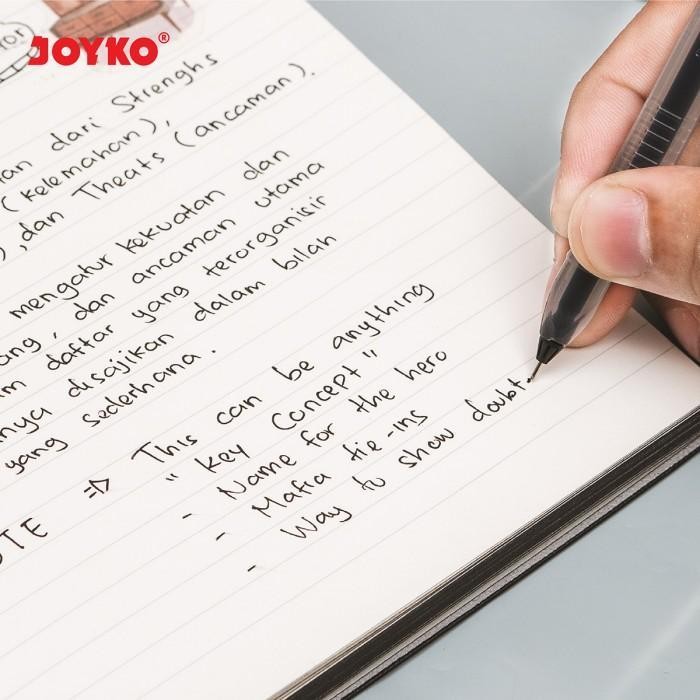 JOYKO®
tor
an dari Strenghs
(kelemahan),
), dan Theats (ancaman).
mengatur kekuatan dan
ang, dan ancaman utama
m daftar yang terorganisir
nya disajikan dalam bilah
yang sederhana.
OTE => This can be anything
" key Concept"
- Name for the hero
- Mafia tie-ins
- Way to show doubt.